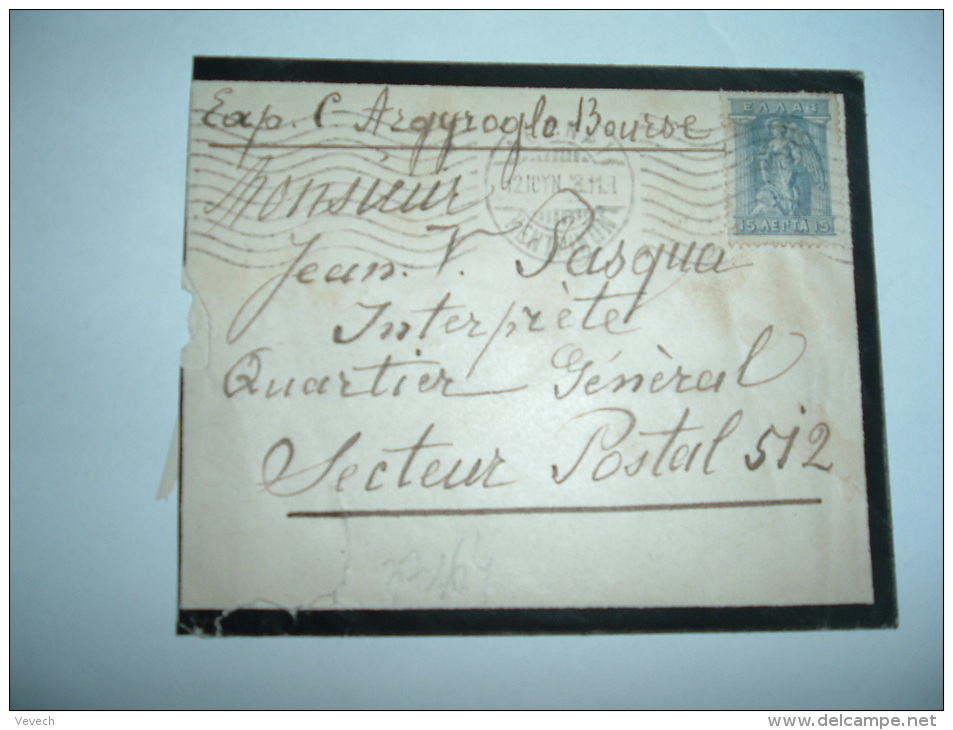 Exp. C Argyroglo Bourse
ΕΛΛΑΣ
15 ΛΕΠΤΑ 15
Monsieur
Jean. V. Pasqua
Interprète
Quartier Général
Secteur Postal 512
Vevech
www.delcampe.net